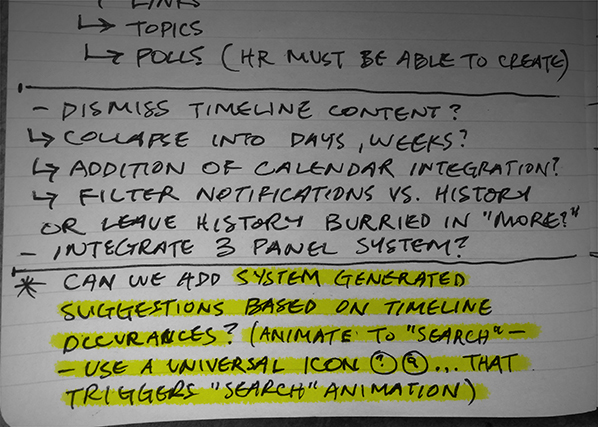 LINKS
↳ TOPICS
↳ POLLS (HR MUST BE ABLE TO CREATE)
- DISMISS TIMELINE CONTENT?
↳ COLLAPSE INTO DAYS, WEEKS?
↳ ADDITION OF CALENDAR INTEGRATION?
↳ FILTER NOTIFICATIONS VS. HISTORY
OR LEAVE HISTORY BURRIED IN "MORE?"
- INTEGRATE 3 PANEL SYSTEM?
* CAN WE ADD SYSTEM GENERATED
SUGGESTIONS BASED ON TIMELINE
OCCURANCES? (ANIMATE TO "SEARCH" -
- USE A UNIVERSAL ICON ... THAT
TRIGGERS "SEARCH" ANIMATION)